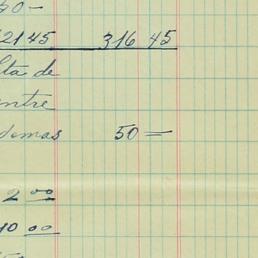 50 -
2145 316 45
lta de
entre
demas 50 =
2 00
10 00